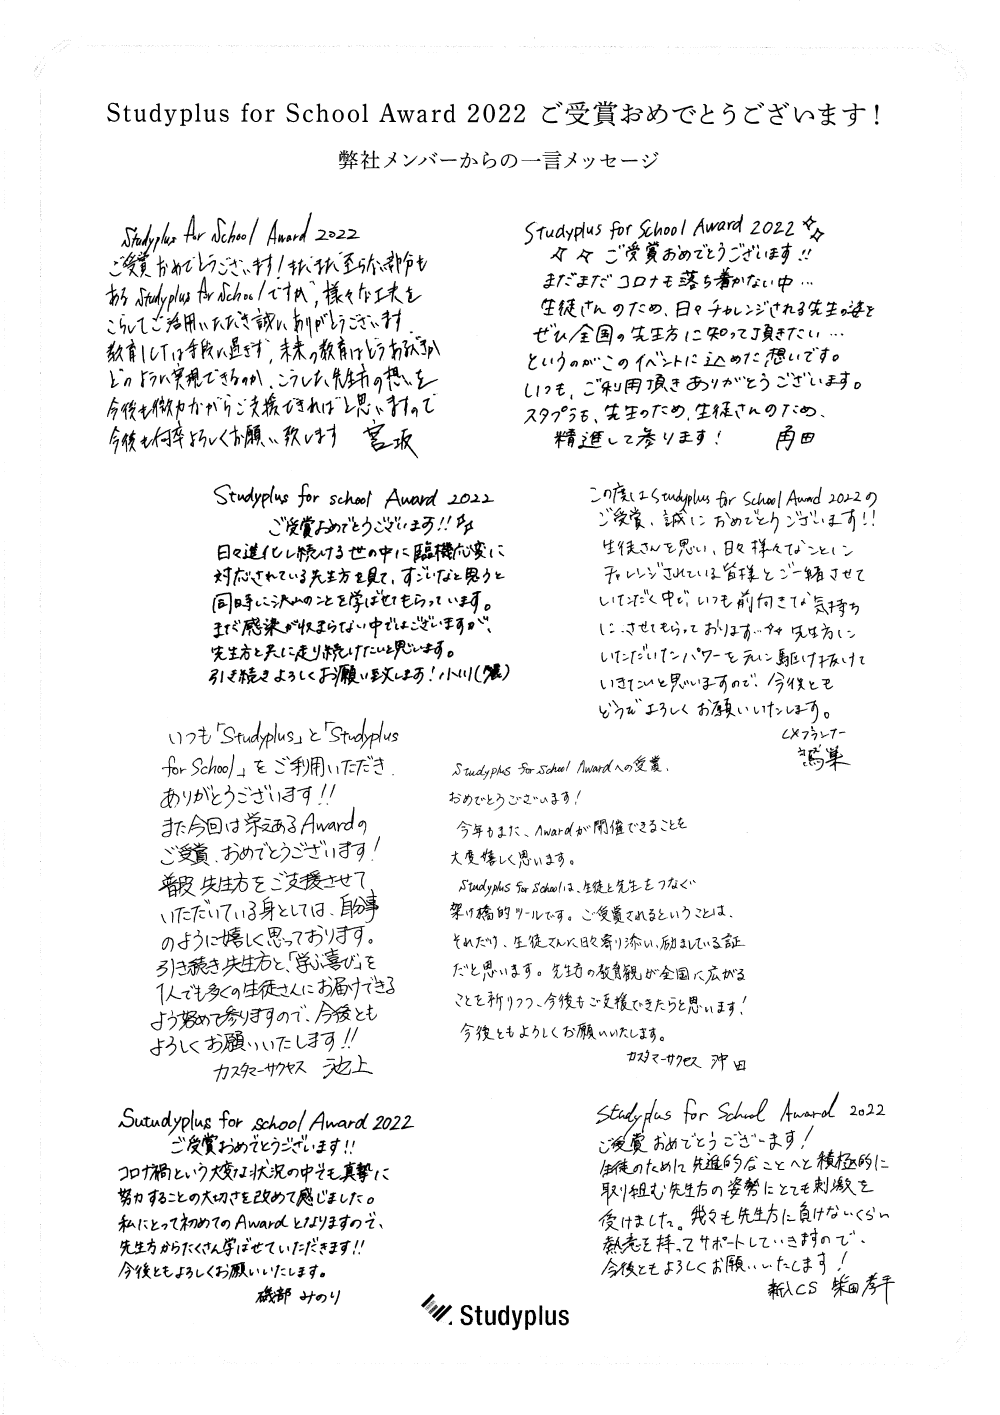 Studyplus for School Award 2022 ご受賞おめでとうございます！
弊社メンバーからの一言メッセージ
Studyplus for School Award 2022
ご受賞おめでとうございます！まだまだ至らない部分も
ある Studyplus for Schoolですが、様々な工夫を
こらしてご活用いただき誠にありがとうございます。
教育ICTは手段に過ぎず、未来の教育はどうあるべきか
どのように実現できるのか、こうした先生方の想いを
今後も微力ながらご支援できればと思いますので
今後も何卒よろしくお願い致します 宮坂
Studyplus for School Award 2022
ご受賞おめでとうございます!!
まだまだコロナも落ち着かない中…
生徒さんのため、日々チャレンジされる先生の姿を
ぜひ全国の先生方に知って頂きたい…
というのがこのイベントに込めた想いです。
いつも、ご利用頂きありがとうございます。
スタプラも、先生のため、生徒さんのため、
精進して参ります！ 角田
Studyplus for school Award 2022
ご受賞おめでとうございます!!
日々進化し続ける世の中に臨機応変に
対応されている先生方を見て、すごいなと思うと
同時に沢山のことを学ばせてもらっています。
まだ感染が収まらない中ではございますが、
先生方と共に走り続けたいと思います。
引き続きよろしくお願い致します！小川(
この度はStudyplus for School Award 2022の
ご受賞、誠におめでとうございます!!
生徒さんを思い、日々様々なことに
チャレンジされている皆様とご一緒させて
いただく中で、いつも前向きな気持ち
に、させてもらっております… 先生方に
いただいたパワーを元に駆け抜けて
いきたいと思いますので、今後とも
どうぞよろしくお願いいたします。
CXプランナー
巣
いつも「Studyplus」と「Studyplus
for School」をご利用いただき、
ありがとうございます!!
また今回は栄えあるAwardの
ご受賞、おめでとうございます！
普段先生方をご支援させて
いただいている身としては、自分事
のように嬉しく思っております。
引き続き先生方と、「学ぶ喜び」を
1人でも多くの生徒さんにお届けできる
よう努めて参りますので、今後とも
よろしくお願いいたします!!
カスタマーサクセス 池上
Studyplus for School Awardへの受賞、
おめでとうございます！
今年もまた、Awardが開催できることを
大変嬉しく思います。
Studyplus for Schoolは、生徒と先生をつなぐ
架け橋的ツールです。ご受賞されるということは、
それだけ、生徒さんに日々寄り添い、励ましている証
だと思います。先生方の教育観が全国に広がる
ことを祈りつつ、今後もご支援できたらと思います！
今後ともよろしくお願いいたします。
カスタマーサクセス 沖田
Sutudyplus for school Award 2022
ご受賞おめでとうございます!!
コロナ禍という大変な状況の中でも真摯に
努力することの大切さを改めて感じました。
私にとって初めてのAwardとなりますので、
先生方からたくさん学ばせていただきます!!
今後ともよろしくお願いいたします。
磯部 みのり
Studyplus for School Award 2022
ご受賞おめでとうございます！
生徒のために先進的なことへと積極的に
取り組む先生方の姿勢にとても刺激を
受けました。我々も先生方に負けないくらい
熱意を持ってサポートしていきますので、
今後ともよろしくお願いいたします！
新人CS 柴田孝平
Studyplus